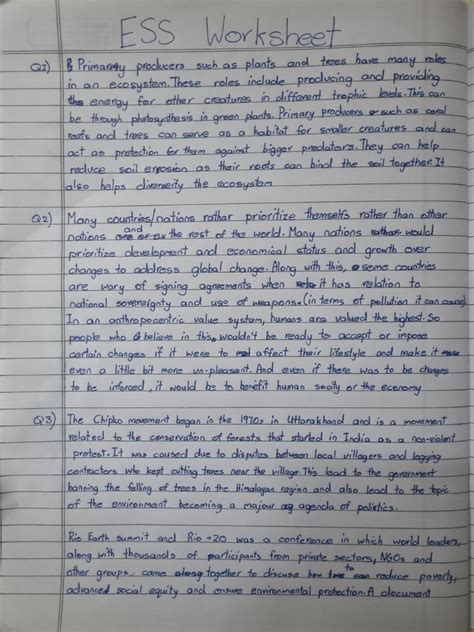 ESS Worksheet
Q1) Primary producers such as plants and trees have many roles
in an ecosystem. These roles include producing and providing
energy for other creatures in different trophic levels. This can
be through photosynthesis in green plants. Primary producers such as coral
roots and trees can serve as a habitat for smaller creatures and can
act as protection for them against bigger predators. They can help
reduce soil erosion as their roots can bind the soil together. It
also helps diversify the ecosystem
Q2) Many countries/nations rathar prioritize themselfs rather than other
nations and the rest of the world. Many nations would
prioritize development and economical status and growth over
changes to address global change. Along with this, some countries
are wary of signing agreements when it has relation to
national sovereignty and use of weapons. (in terms of pollution it can cause)
In an anthropocentric value system, humans are valued the highest. So
people who believe in this, wouldn't be ready to accept or impose
certain changes if it were to affect their lifestyle and make it
even a little bit more un-pleasant. And even if there was to be changes
to be inforced, it would be to benefit human socity or the economy
Q3) The Chipko movement began in the 1970s in Uttarakhand and is a movement
related to the conservation of forests that started in India as a non-violent
protest. It was caused due to disputes between local villagers and logging
contractors who kept cutting trees near the village. This lead to the government
banning the felling of trees in the Himalayan region and also lead to the topic
of the environment becoming a majour agenda of politics.
Rio Earth summit and Rio +20 was a conference in which world leaders,
along with thousands of participants from private sectors, NGOs and
other groups came together to discuss how to reduce poverty,
advanced social equity and ensure environmental protection. A document